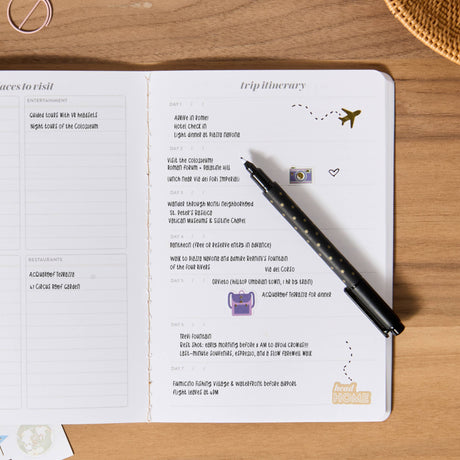 aces to visit
ENTERTAINMENT
Guided tours with VR headsets
Night tours of the Colosseum
RESTAURANTS
Acquaroof Terrazza
47 Circus Roof Garden
trip itinerary
DAY 1 / /
Arrive in Rome!
Hotel check in
Light dinner at Piazza Navona
DAY 2 / /
Visit the Colosseum!
Roman Forum + Palatine Hill
Lunch near Via dei Fori Imperiali
DAY 3 / /
Wander through Monti neighborhood
St. Peter's Basilica
Vatican Museums & Sistine Chapel
DAY 4 / /
Pantheon (free or reserve entry in advance)
Walk to Piazza Navona and admire Bernini's Fountain
of the Four Rivers
Via del Corso
DAY 5 / /
Orvieto (hilltop Umbrian town, 1 hr by train)
Acquaroof Terrazza for dinner
DAY 6 / /
Trevi Fountain
Best shot: early morning before 8 AM to avoid crowds!!!
Last-minute souvenirs, espresso, and a slow farewell walk
DAY 7 / /
Fiumicino Fishing Village & Waterfront before airport
Flight leaves at 6PM
head
HOME